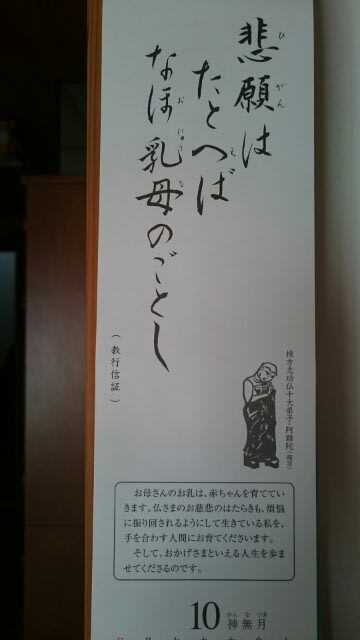 悲願は
たとへば
なほ乳母のごとし
(教行信証)
棟方志功仏十大弟子・阿難陀(模写)
お母さんのお乳は、赤ちゃんを育ててい
きます。仏さまのお慈悲のはたらきも、煩悩
に振り回されるようにして生きている私を、
手を合わす人間にお育てくださいます。
そして、おかげさまといえる人生を歩ま
せてくださるのです。
10 神無月